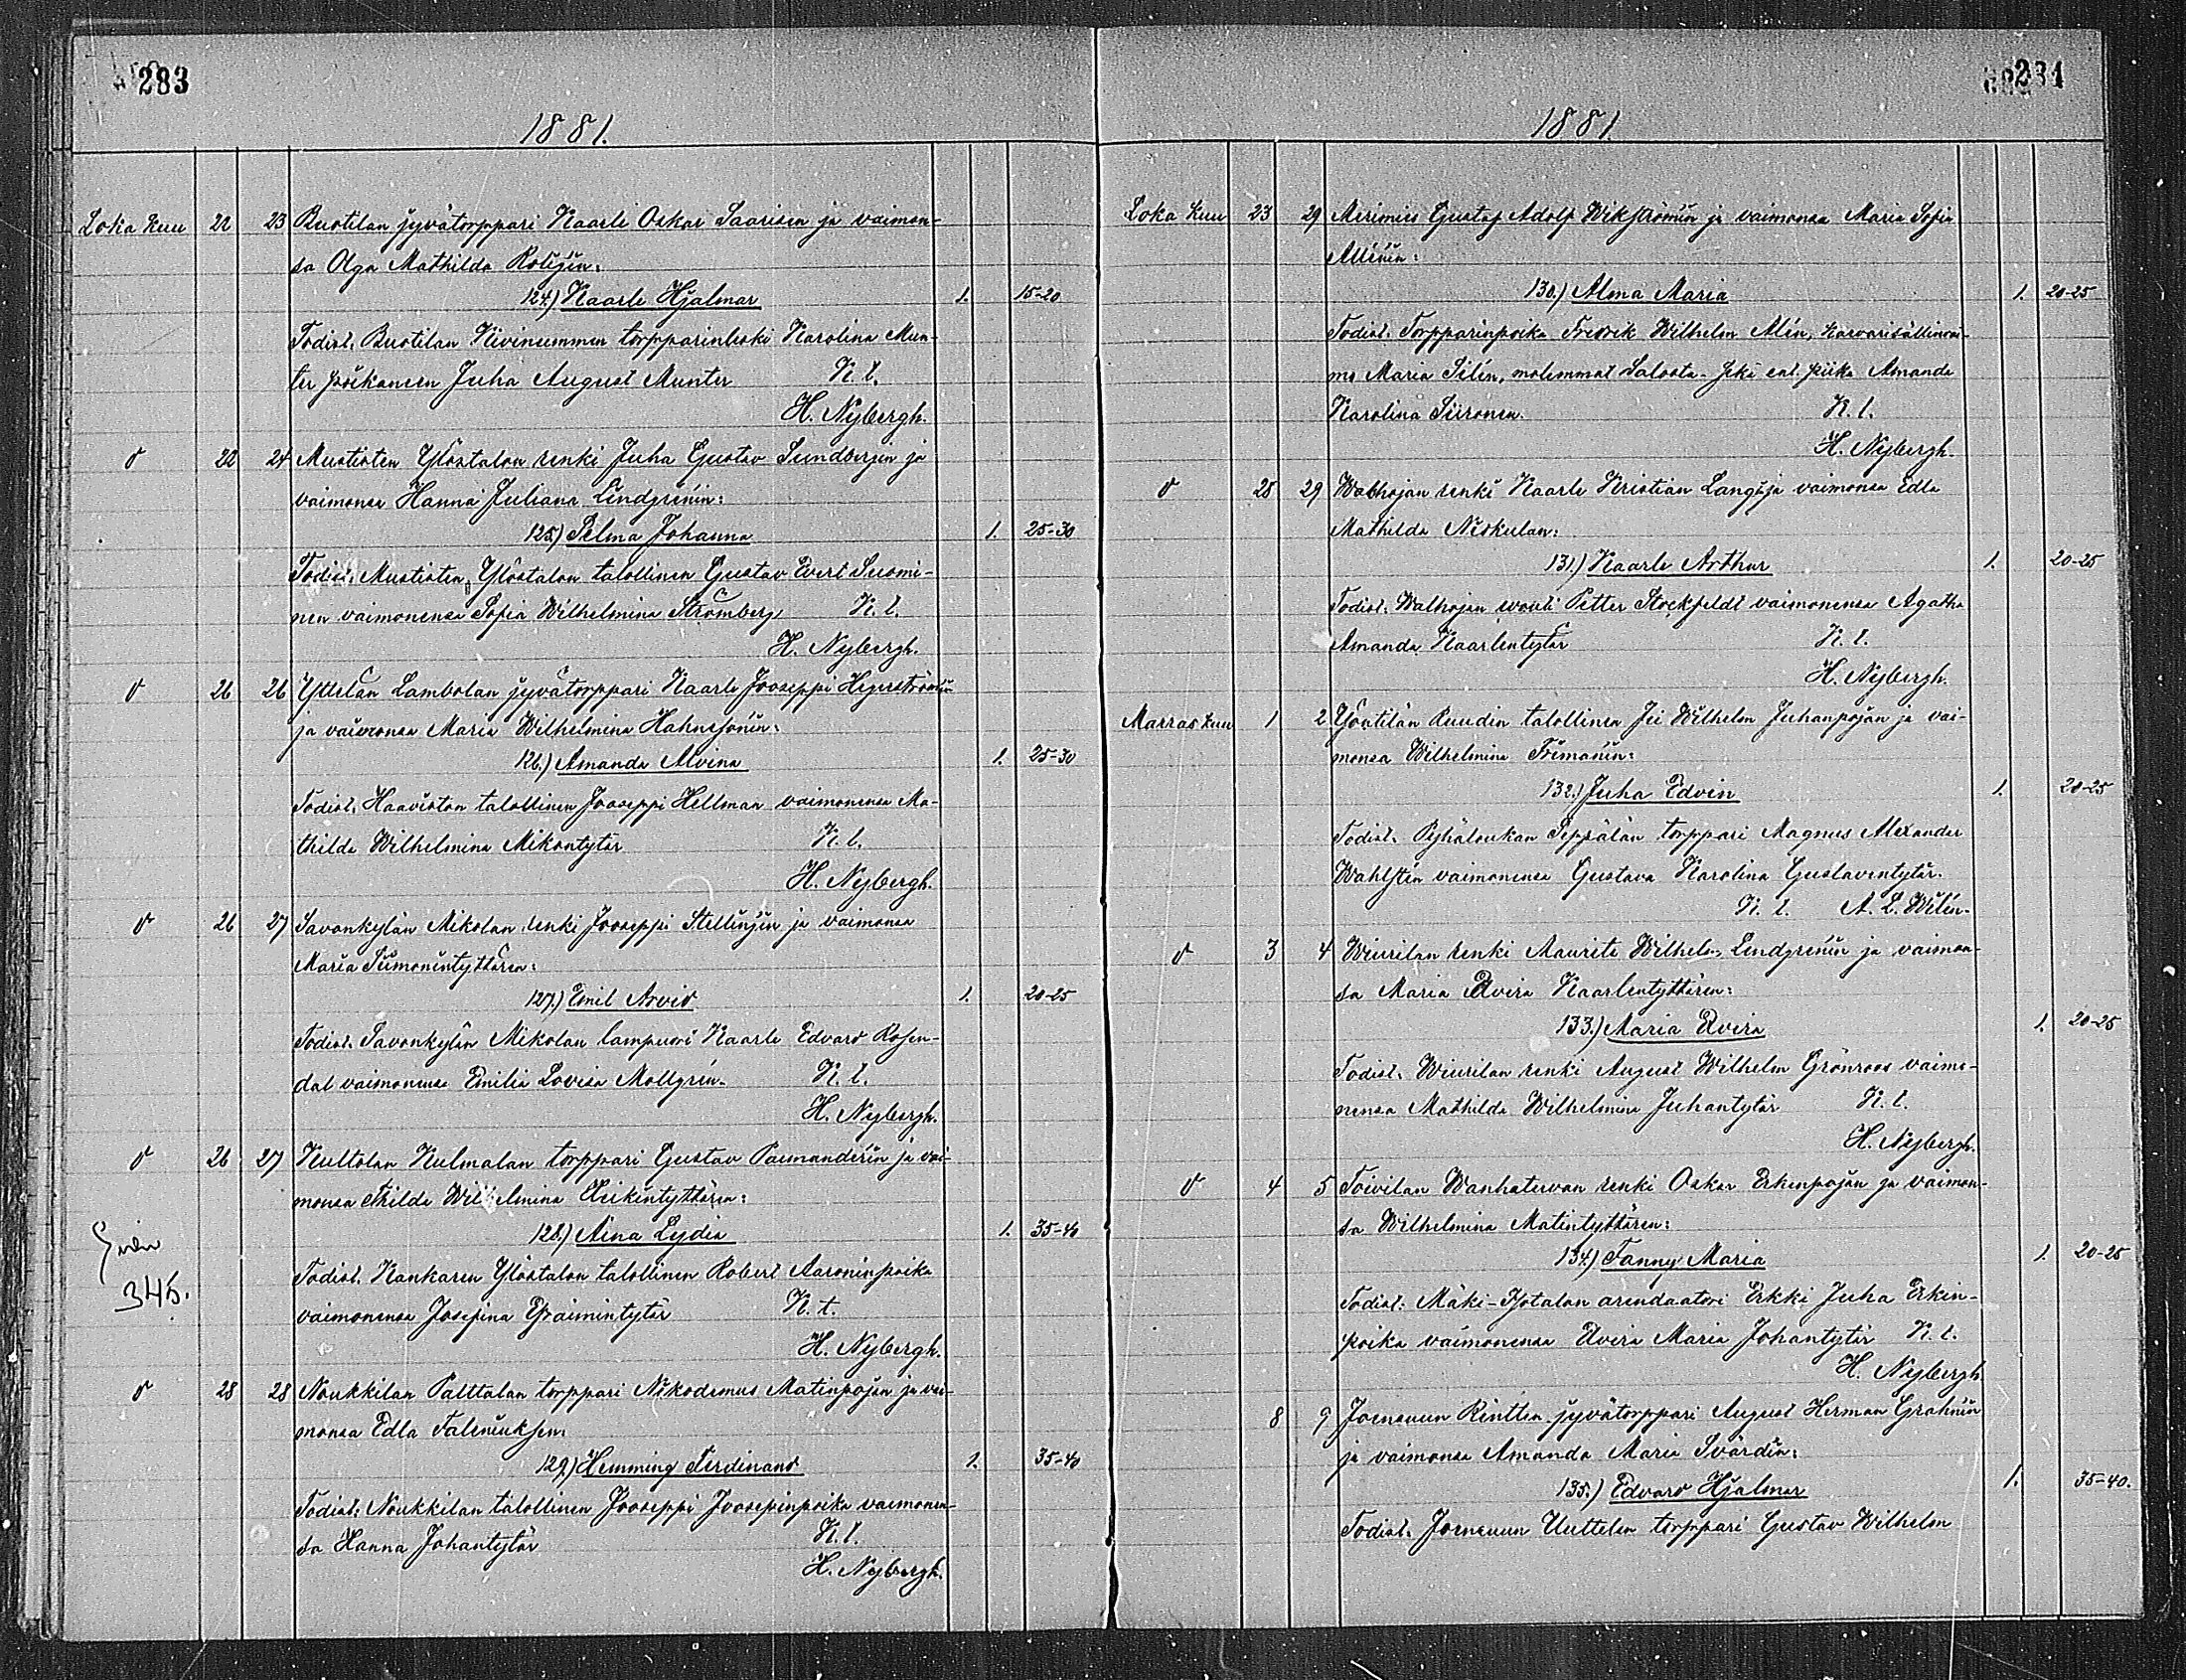 283
1881.
Loka Kuu 22 23 Buotilan jyvätorppari Kaarle Oskar Saarisen ja vaimon-
sa Olga Mathilda Rolijin:
124.) Kaarle Hjalmar 1. 15-20
Todist. Buotilan Kivinummen torpparinleski Karolina Mun-
ter poikaneen Juha August Munter K. t.
H. Nybergh.
22 24 Mustisten Ylöstalon renki Juha Gustav Sundbergin ja
vaimonsa Hanna Juliana Lindgrénin:
125.) Selma Johanna 1. 25-30
Todist. Mustisten Ylöstalon talollinen Gustav Evert Suomi-
nen vaimonensa Sofia Wilhelmina Strömberg K. t.
H. Nybergh.
26 26 Yttelän Lambolan jyvätorppari Kaarle Jooseppi Hegerströmin
ja vaimonsa Maria Wilhelmina Hahnssonin:
126.) Amanda Alvina 1. 25-30
Todist. Haaviston talollinen Jooseppi Hellman vaimonensa Ma-
thilda Wilhelmina Mikontytär K. t.
H. Nybergh.
26 27 Savonkylän Mikolan renki Jooseppi Stellingin ja vaimonsa
Maria Siimonintyttären:
127.) Emil Arvid 1. 20-25
Todist. Savonkylän Mikolan lampuori Kaarle Edvard Rosen-
dal vaimonensa Emilia Lovisa Mollgrén. K. t.
H. Nybergh.
26 27 Kultolan Kulmalan torppari Gustav Paemanderin ja vai-
monsa Thilda Wilhelmina Heikintyttären:
128.) Aina Lydia 1. 35-40
345.
Todist. Kankaren Ylöstalon talollinen Robert Aaroninpoika
vaimonensa Josefina Efraimintytär K. t.
H. Nybergh.
28 28 Noukkilan Palttalan torppari Nikodemus Matinpojan ja vai-
monsa Edla Faleniuksen:
129.) Hemming Ferdinand 1. 35-40
Todist: Noukkilan talollinen Jooseppi Joosepinpoika vaimonen-
sa Hanna Johantytär K. t.
H. Nybergh.
1881
Loka Kuu 23 29 Merimies Gustaf Adolf Wikströmin ja vaimonsa Maria Sofia
Allénin:
130.) Alma Maria 1. 20-25
Todist. Torpparinpoika Fredrik Wilhelm Alén, karvarisällinvai-
mo Maria Silén, molemmat Salosta
Karolina Siironen. K. t.
H. Nybergh.
28 29 Walhojan renki Kaarle Kristian Langi ja vaimonsa Edla
Mathilda Niskulan:
131.) Kaarle Arthur 1. 20-25
Todist. Walhojan wouti Petter Stockfeldt vaimonensa Agatha
Amanda Kaarlentytär K. t.
H. Nybergh.
Marras Kuu 1 2 Yöntilän Ruudin talollinen Wilhelm Juhanpojan ja vai-
monsa Wilhelmina Frimanin:
132.) Juha Edvin 1. 20-25
Todist. Pyhäloukan Seppälän torppari Magnus Alexander
Wahlstén vaimonensa Gustava Karolina Gustaventytär.
K. t. A. L. Wilén.
3 4 Wiurilan renki Maurits Wilhelm Lindgrénin ja vaimon-
sa Maria Elvira Kaarlentyttären:
133.) Maria Elvira 1. 20-25
Todist. Wiurilan renki August Wilhelm Grönroos vaimo-
nensa Mathilda Wilhelmina Juhantytär K. t.
H. Nybergh.
4 5 Toivilan Wanhatervan renki Oskar Erkinpojan ja vaimon-
sa Wilhelmina Matintyttären:
134.) Fanny Maria 1. 20-25
Todist: Mäki-Isotalon arendaatori Erkki Juha Erkin-
poika vaimonensa Elvira Maria Johantytär K. t.
H. Nybergh
8 9 Joensuun Rintten jyvätorppari August Herman Grahnin
ja vaimonsa Amanda Maria Svärdin:
135.) Edvard Hjalmar 1. 35-40.
Todist. Joensuun Uuttelon torppari Gustav Wilhelm